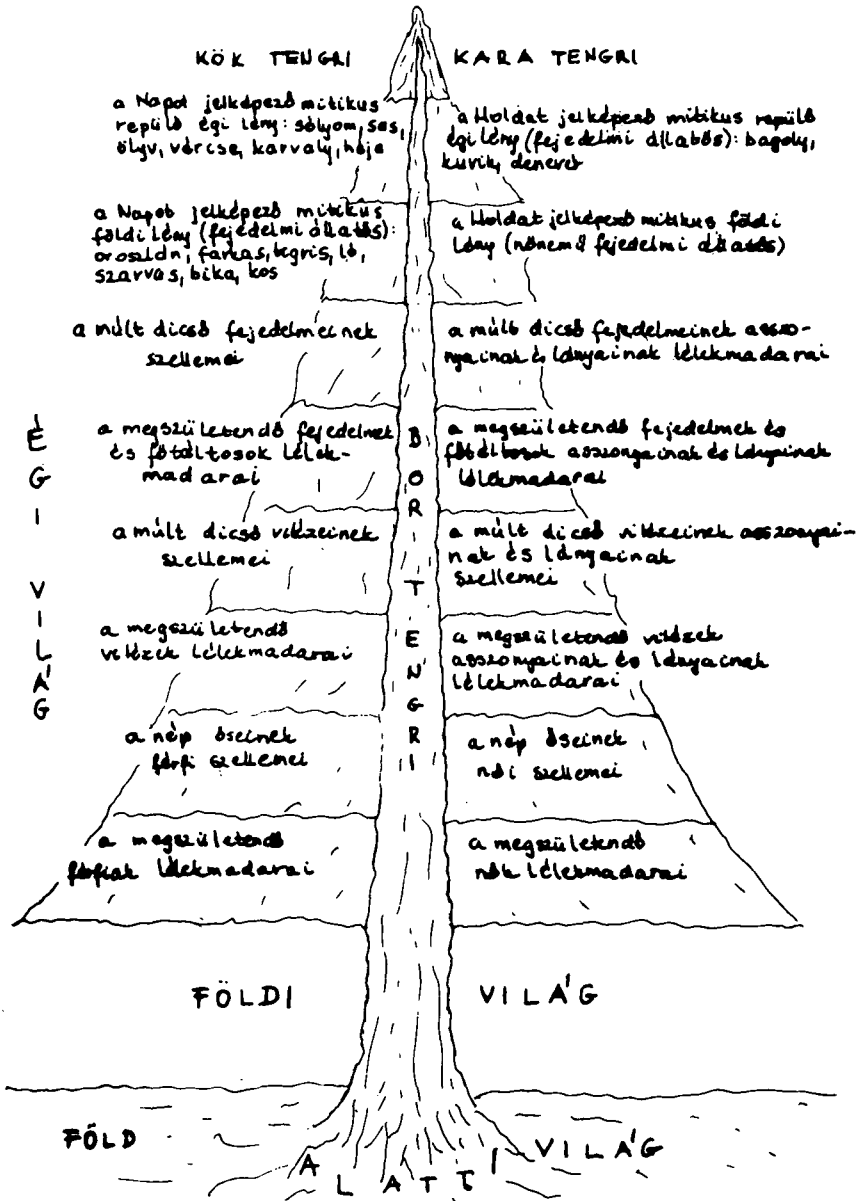 KÖK TENGRI
KARA TENGRI
a Napot jelképező mitikus
repülő égi lény: sólyom, sas,
ölyv, vércse, karvaly, héja
a Holdat jelképező mitikus repülő
égi lény (fejedelmi állatős): bagoly,
kuvik, denevér
a Napot jelképező mitikus
földi lény (fejedelmi állatős):
oroszlán, farkas, tigris, ló,
szarvas, bika, kos
a Holdat jelképező mitikus földi
lény (nőnemű fejedelmi állatős)
a múlt dicső fejedelmeinek
szellemei
a múlt dicső fejedelmeinek asszo-
nyainak és lányainak lélekmadarai
a megszületendő fejedelmek
és főtáltosok lélek-
madarai
a megszületendő fejedelmek és
főtáltosok asszonyainak és lányainak
lélekmadarai
a múlt dicső vitézeinek
szellemei
a múlt dicső vitézeinek asszonyai-
nak és lányainak
szellemei
a megszületendő
vitézek lélekmadarai
a megszületendő vitézek
asszonyainak és lányainak
lélekmadarai
a nép őseinek
férfi szellemei
a nép őseinek
női szellemei
a megszületendő
férfiak lélekmadarai
a megszületendő
nők lélekmadarai
ÉGI VILÁG
BOR TENGRI
FÖLDI VILÁG
FÖLD ALATTI VILÁG